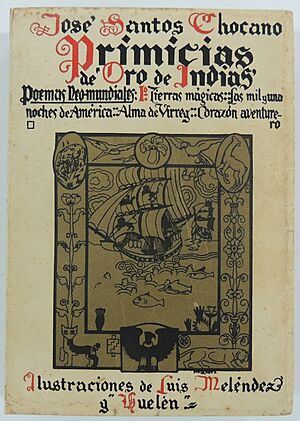 José Santos Chocano
Primicias
de Oro de Indias
Poemas Neo-mundiales: Tierras mágicas: Las mil y una
noches de América: Alma de Virrey: Corazón aventure-
ro
Ilustraciones de Luis Meléndez
y "Huelén"